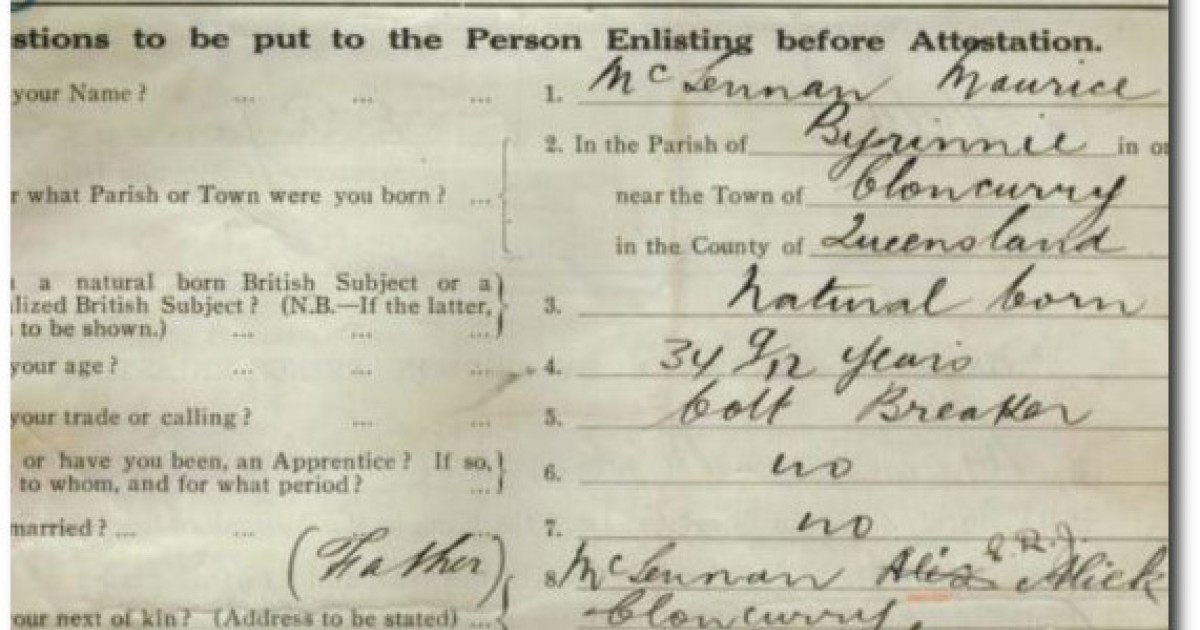 stions to be put to the Person Enlisting before Attestation.
your Name? ... ... ... 1. McLennan Maurice
2. In the Parish of Byrinnie in or
r what Parish or Town were you born? ... near the Town of Cloncurry
in the County of Queensland
a natural born British Subject or a
lized British Subject? (N.B.—If the latter, 3. Natural born
to be shown.) ... ... ...
your age? ... ... ... 4. 34 9/12 years
your trade or calling? ... ... 5. Colt Breaker
or have you been, an Apprentice? If so, 6. no
to whom, and for what period? ...
married? ... ... ... 7. no
(Father) 8. McLennan Alick
our next of kin? (Address to be stated) ... Cloncurry,